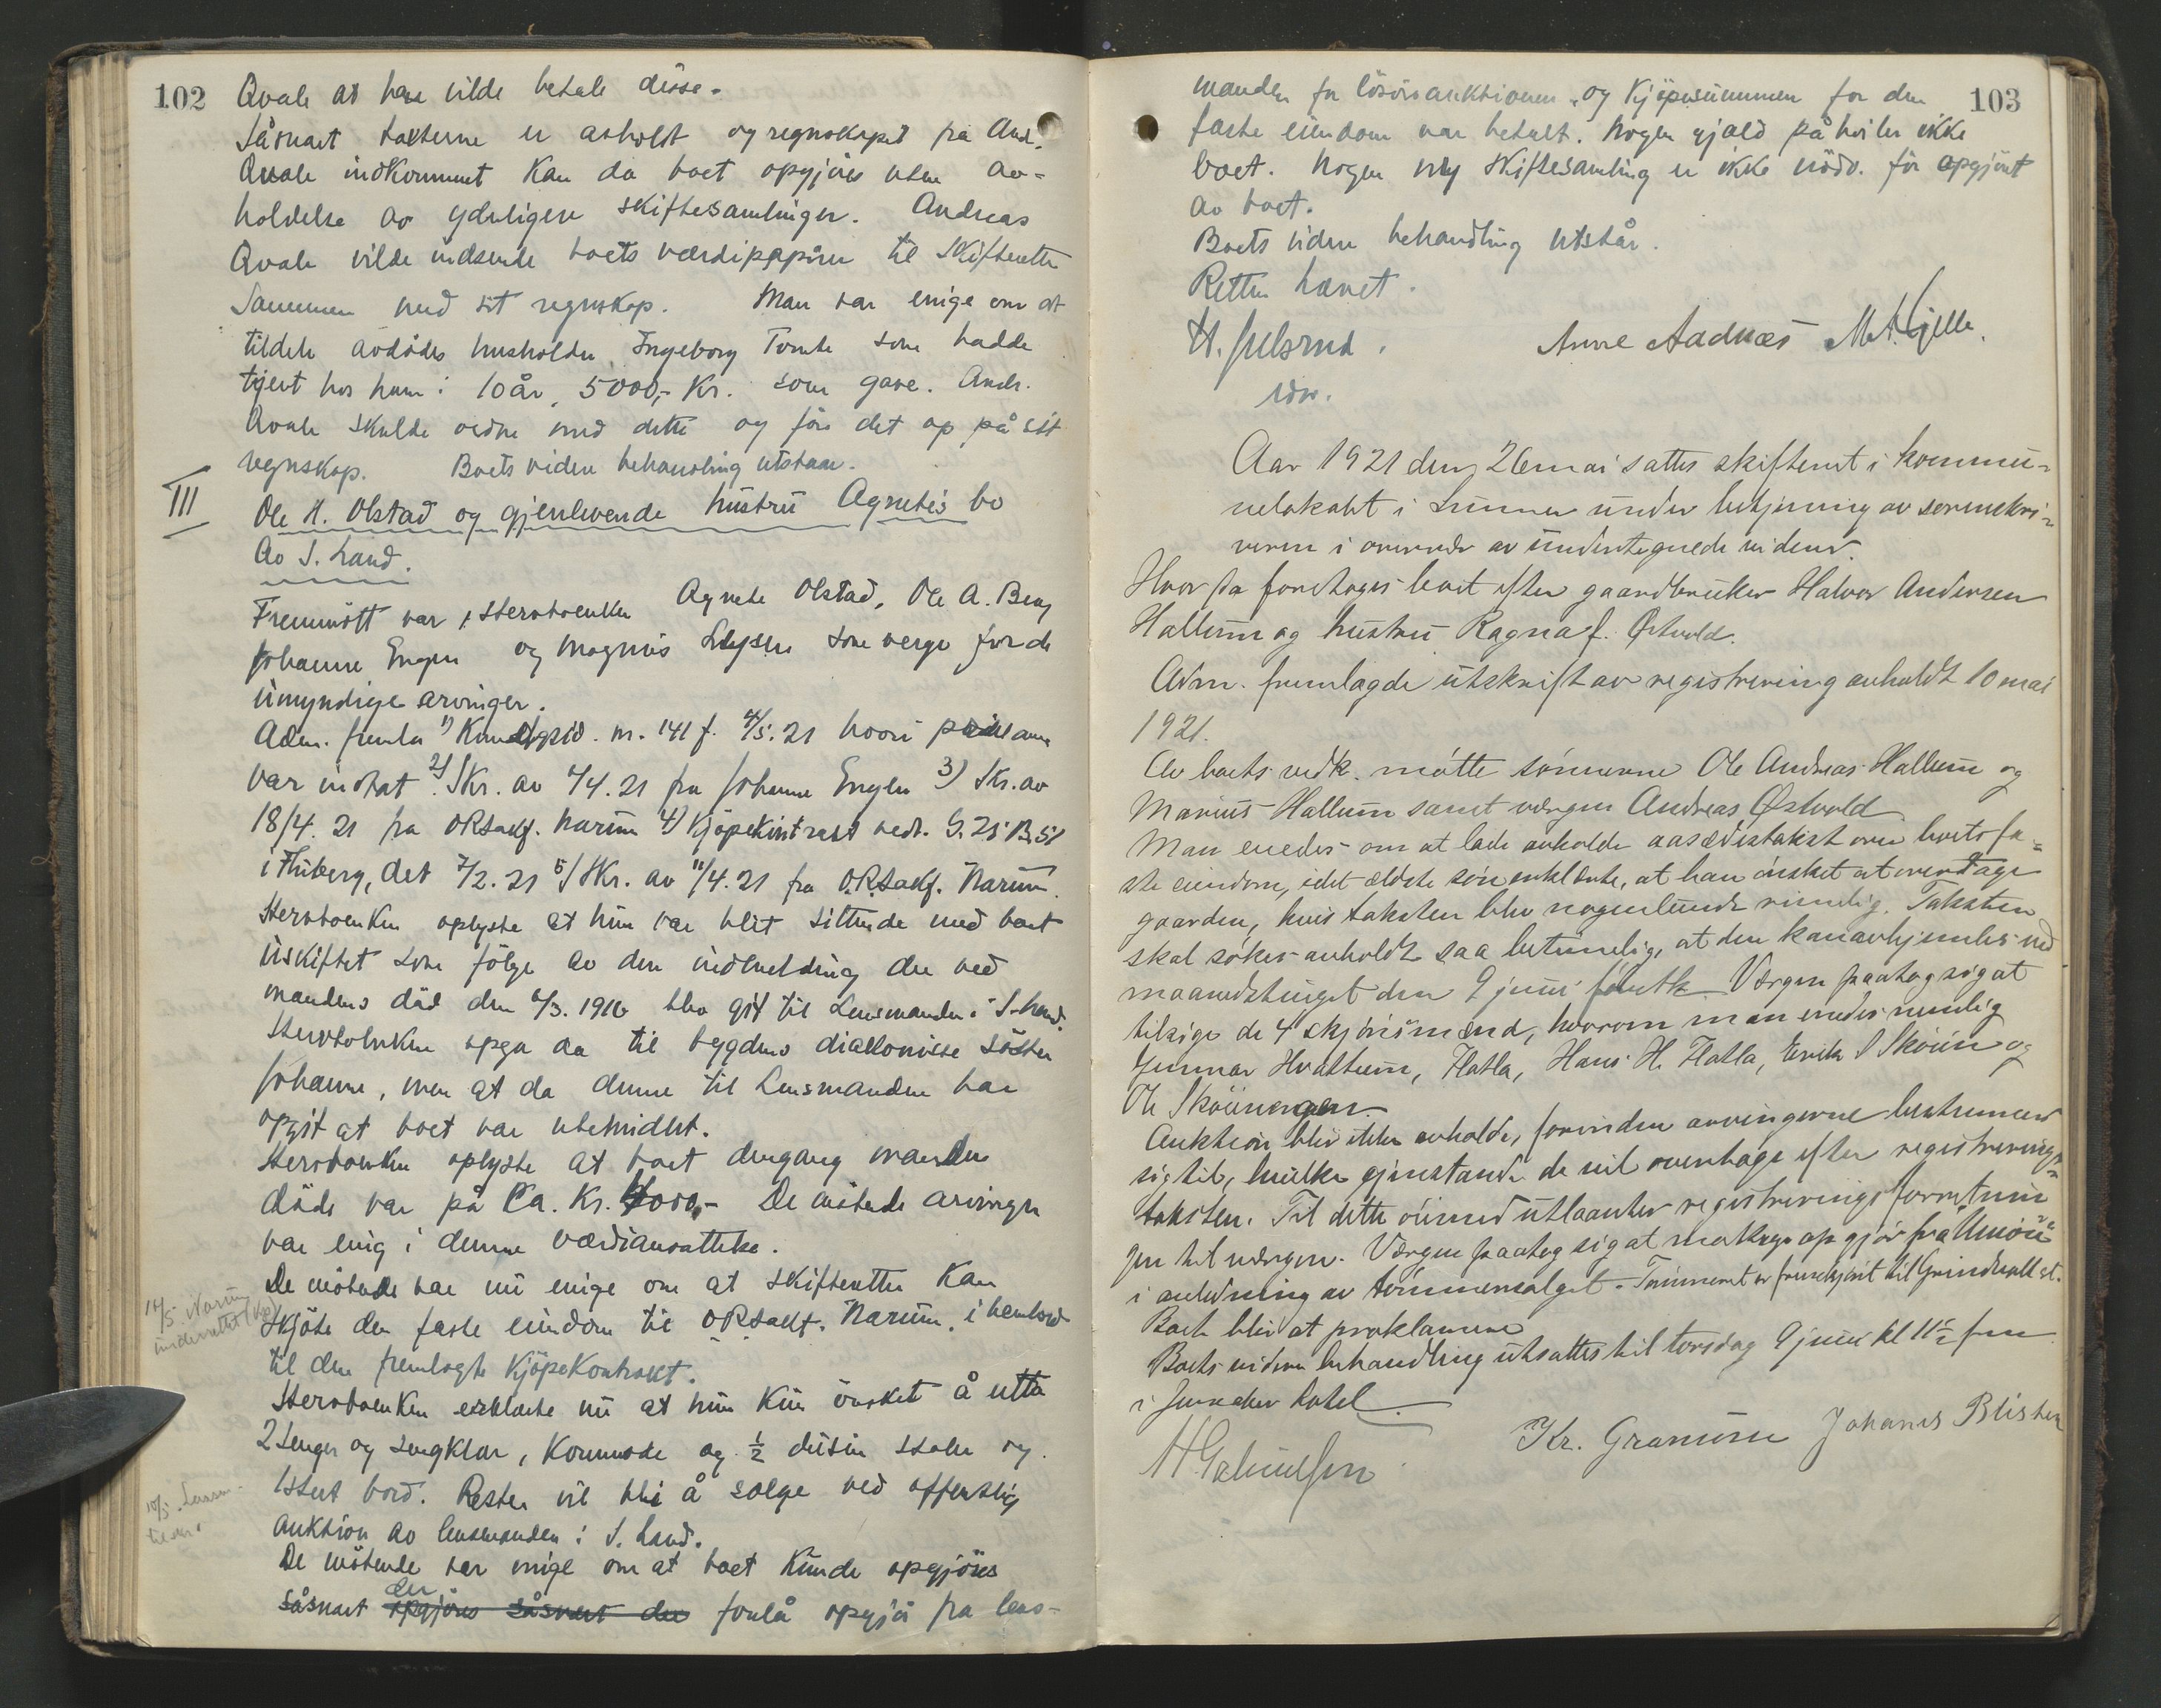 102
Qvale at han vilde betale disse.
Såsnart taksterne er avholdt og regnskapet fra And.
Qvale indkommet kan da boet opgjöres uten av-
holdelse av yderligere skiftesamlinger. Andreas
Qvale vilde indsende boets værdipapirer til Skifteretten
sammen med sit regnskap. Man var enige om at
tildele avdödes husholder Ingeborg Tomte som hadde
tjent hos ham i 10 år, 5000,- Kr. som gave. Andr.
Qvale skulde ordne med dette og före det op på sit
regnskap. Boets videre behandling utstaar.
III
Ole H. Olstad og gjenlevende hustru Agnetes bo
av S. Land.
Fremmött var stervboenken Agnete Olstad, Ole A. Berg
Johanne Engen og Magnus som verge for de
umyndige arvinger.
Adm. fremla 1) Kundgjid. nr. 141 f. 4/5. 21 hvori
var indtat 2) Skr. av 7/4. 21 fra Johanne Engen 3) Skr. av
18/4. 21 fra ORsakf. Narum 4) Kjöpekontrakt vedr. G. 25 B.
i Fluberg, dat 7/2. 21 5) Skr. av 11/4. 21 fra O.R.sakf. Narum.
Stervboenken oplyste at hun var blit sittende med boet
uskiftet som fölge av den indmelding der ved
mandens död den 6/3. 1916 blev git til Lensmanden i S. Land.
Stervboenken opga da til bygdens diakonisse söster
Johanne, men at da denne til Lensmanden har
opgit at boet var ubemidlet.
Stervboenken oplyste at boet dengang manden
döde var på Ca. Kr. 4000,- De mötende arvinger
var enig i denne værdiansættelse.
De mötende var nu enige om at skifteretten kan
skjöte den faste eiendom til ORsakf. Narum, i henhold
til den fremlagte Kjöpekontrakt.
14/5. Narum
underrettet
Stervboenken erklærte nu at hun kun önsket å utta
2 senger og sengklær, Kommode og ½ dusin stoler og
1 stuet bord. Resten vil bli å sælge ved offentlig
10/5. Lensm.
auktion av lensmanden i S. Land.
De mötende var enige om at boet kunde opgjöres
såsnart opgjöres såsnart der der forelå opgjör fra lens-
103
manden for lösöreauktionen og Kjöpesummen for den
faste eiendom var betalt. Nogen gjæld påhviler ikke
boet. Nogen ny skiftesamling er ikke nödv. för opgjöret
av boet.
Boets videre behandling utstår.
Retten hævet.
H. Julsrud.
Anne Aadnæs M. A. Gjelle.
Aar 1921 den 26 mai sattes skifteret i kommu-
nelokalet i Lunner under betjening av sorenskri-
veren i overvær av undertegnede vidner.
Hvor da foretoges boet efter gaardbruker Halvor Andersen
Hallum og hustru Ragna f. Østvold.
Adm. fremlagde utskrift av registrering avholdt 10 mai
1921.
Av boets vedk. mötte sönnerne Ole Andreas Hallum og
Marius Hallum samt værgen Andreas Østvold
Man enedes om at lade avholde aasædestakst over boets fa-
ste eiendom, idet ældste sön erklærte, at han önsket at overtage
gaarden, hvis taksten blev nogenlunde rimelig. Taksten
skal sökes avholdt saa betimelig, at den kan avhjemles ved
maanedstinget den 9 juni Værgen paatog sig at
tilsige de 4 skjönsmænd, hvorom man enedes nemlig
Gunnar Hvattum, Flatla, Hans H. Flatla, Erik S Sköien og
Ole Sköiengen.
Auktion blir ikke avholde, forinden arvingerne bestemmer
sig til, hvilke gjenstande de vil overtage efter registrerings-
taksten. Til dette öiemed utlaantes registreringsforretnin-
gen til værgen. Værgen paatog sig at motta opgjör fra Union
i anledning av tömmersalget. Tömmeret er fremkjört til Grindvoll st.
Boet blir at proklamere
Boets videre behandling utsattes til torsdag 9 juni kl 11½ fm
i Jevnaker hotel
Kr. Granum Johannes Blister